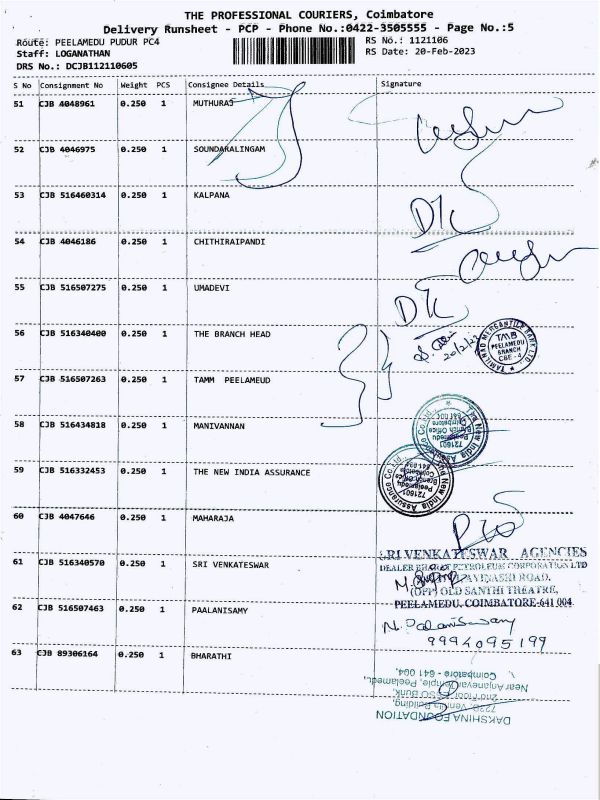 THE PROFESSIONAL COURIERS, Coimbatore
Delivery Runsheet - PCP - Phone No.:0422-3505555 - Page No.:5
Route: PEELAMEDU PUDUR PC4
RS No.: 1121106
Staff: LOGANATHAN
RS Date: 20-Feb-2023
DRS No.: DCJB112110605
S No Consignment No Weight PCS Consignee Details Signature
51 CJB 4048961 0.250 1 MUTHURAJ
52 CJB 4046975 0.250 1 SOUNDARALINGAM
53 CJB 516460314 0.250 1 KALPANA
54 CJB 4046186 0.250 1 CHITHIRAIPANDI
55 CJB 516507275 0.250 1 UMADEVI
56 CJB 516340400 0.250 1 THE BRANCH HEAD
20/2/23
TAMILNAD MERCANTILE BANK LTD
TMB
PEELAMEDU
BRANCH
CBE - 4
57 CJB 516507263 0.250 1 TAMM PEELAMEUD
58 CJB 516434818 0.250 1 MANIVANNAN
The New India Assurance Co. Ltd.
721601
Peelamedu
Branch Office
Coimbatore
641 004
59 CJB 516332453 0.250 1 THE NEW INDIA ASSURANCE
The New India Assurance Co. Ltd.
721601
Peelamedu
Branch Office
Coimbatore
641-004
60 CJB 4047646 0.250 1 MAHARAJA
61 CJB 516340570 0.250 1 SRI VENKATESWAR
SRI VENKATESWAR AGENCIES
DEALER BHARAT PETROLEUM CORPORATION LTD
AVINASHI ROAD,
(OPP) OLD SANTHI THEATRE,
PEELAMEDU, COIMBATORE-641 004
62 CJB 516507463 0.250 1 PAALANISAMY
N. Palaniswamy
9994095199
63 CJB 89306164 0.250 1 BHARATHI
DAKSHINA FOUNDATION
Building,
2nd Floor, ESSO Bunk,
Near Anjaneyar Temple, Peelamedu,
Coimbatore - 641 004.